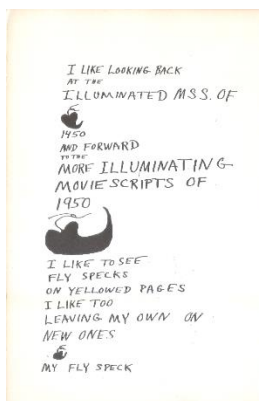 I LIKE LOOKING BACK
AT THE
ILLUMINATED MSS. OF
1450
AND FORWARD
TO THE
MORE ILLUMINATING
MOVIE SCRIPTS OF
1950
I LIKE TO SEE
FLY SPECKS
ON YELLOWED PAGES
I LIKE TOO
LEAVING MY OWN ON
NEW ONES
MY FLY SPECK